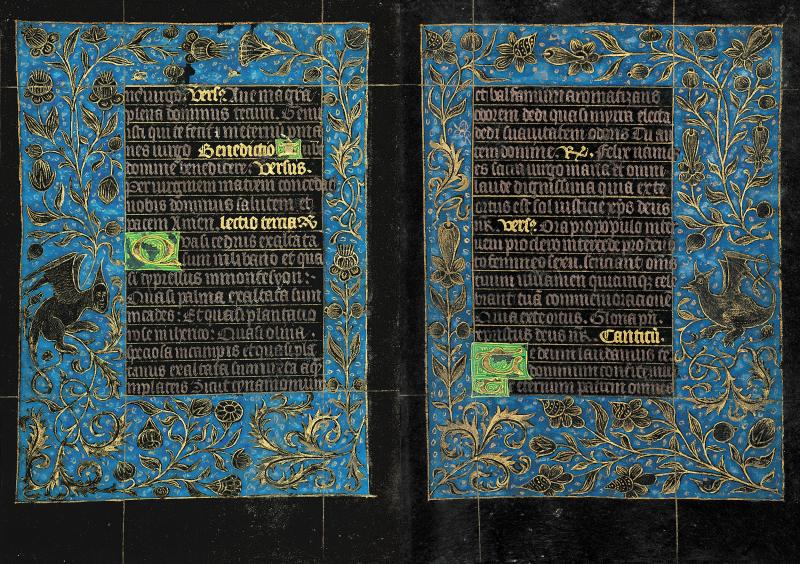 ne virgo. Vers9. Aue maria gra
plena dominus tecum. Sent
sci qui te fecit in eternum ma
nes virgo Benedictio
domine benedicere: Versus.
Per virginem matrem concedat
nobis dominus salutem et
pacem Amen. lectio terna
Quasi cedrus exaltata
sum in libano et qua
si cypressus in monte syon:
Quasi palma exaltata sum
in cades: Et quasi plantacio
rose in iherico: Quasi oliua
speciosa in campis et quasi pla
tanus exaltata sum iuxta aqz
in plateis Sicut cynamomum
et balsamum aromatizans
odorem dedi quasi myrra electa
dedi suauitatem odoris Tu au
tem domine. R. Felix namqz
es sacra virgo maria et omni
laude dignissima quia ex te
ortus est sol iusticie xps deus
nr. Vers9. Ora pro populo inter
ueni pro clero intercede pro deuo
to femineo sexu. senciant oms
tuum iuuamen quicumqz cele
brant tuā commemoracionē
Quia ex te ortus. Gloria pri.
xpristus deus nr. Canticū.
Te deum laudamus te
dominum confitemur
Te eternum patrem omnis